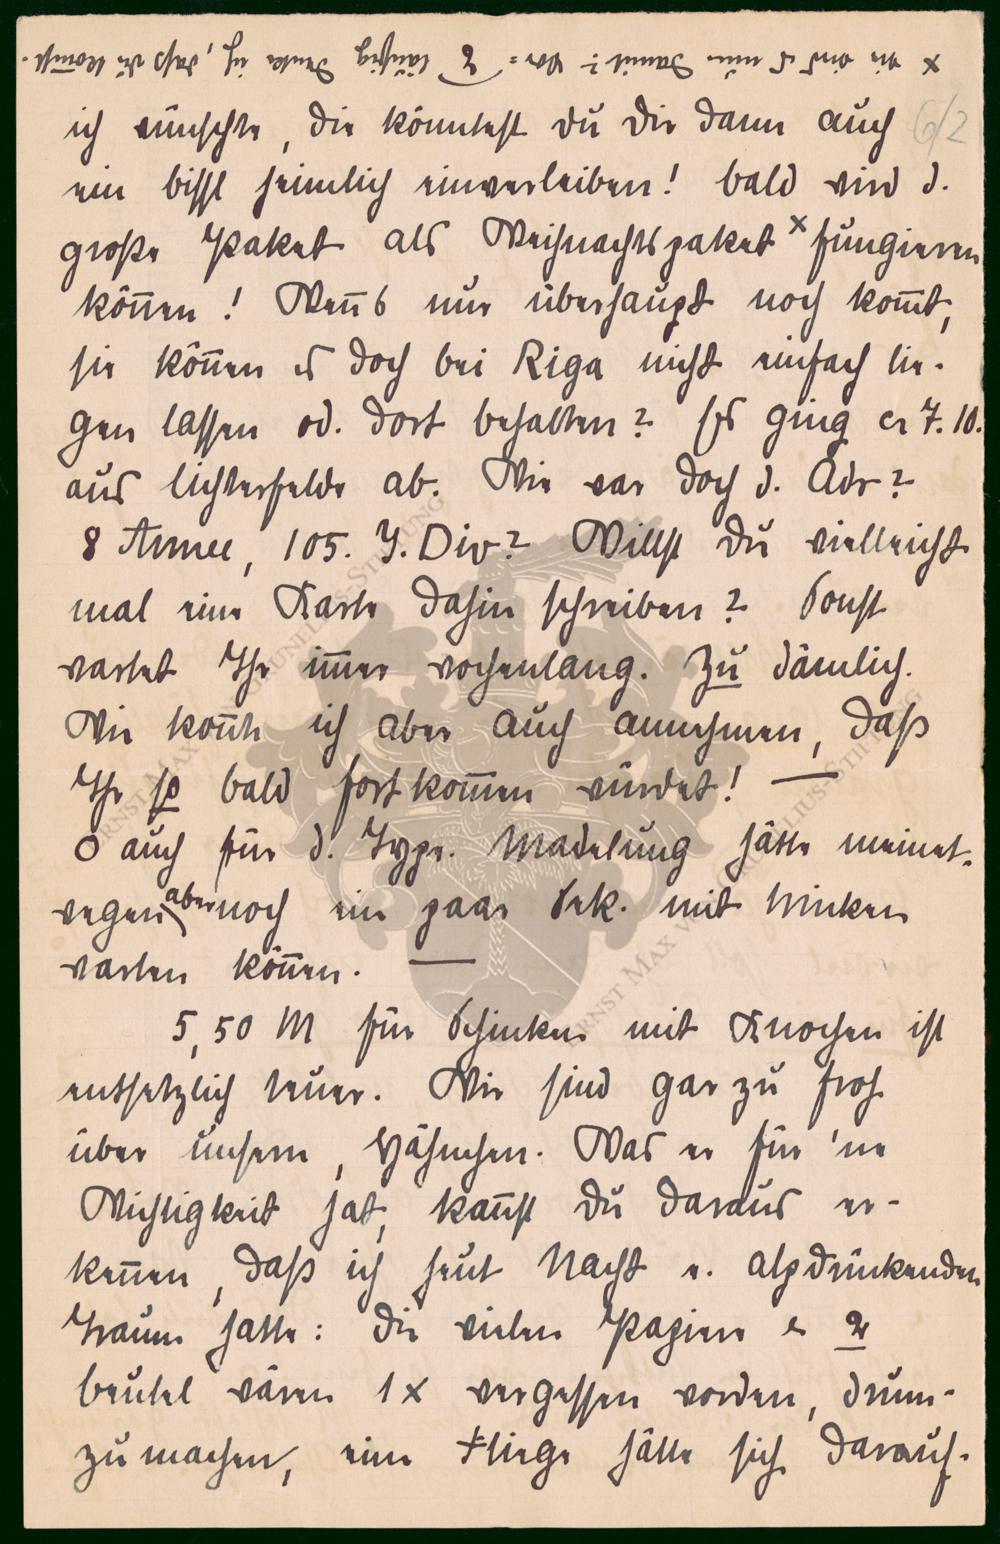 x wie wird es nun damit? Vor= läufig denke ich, daß du kom̄st.
ich wünschte, die könntest du dir dann auch 6/2
ein bißl heimlich einverleiben! bald wird d.
große Paket als Weihnachtspaket x fungieren
kön̄en! Wen̄s nur überhaupt noch kom̄t,
sie kön̄en es doch bei Riga nicht einfach lie-
gen lassen od. dort behalten? Es ging ca 7. 10.
aus Lichterfelde ab. Wie war doch d. Adr?
8 Armee, 105. J. Div? Willst du vielleicht
mal eine Karte dahin schreiben? Sonst
wartet Ihr im̄er wochenlang. Zu dämlich.
Wie kon̄te ich aber auch annehmen, daß
Ihr so bald fortkom̄en würdet! —
O auch für d. Type. Madelung hätte meinet-
wegen aber noch ein paar Sek. mit Winken
warten kön̄en. —
5,50 M für Schinken mit Knochen ist
entsetzlich teuer. Wir sind gar zu froh
über unsern, Hähnchen. Was er für 'ne
Wichtigkeit hat, kan̄st du daraus er-
ken̄en, daß ich heut Nacht e. alpdrückenden
Traum hatte: die vielen Papiere
beutel wären 1 x vergessen worden, drum-
zumachen, eine Fliege hätte sich darauf-